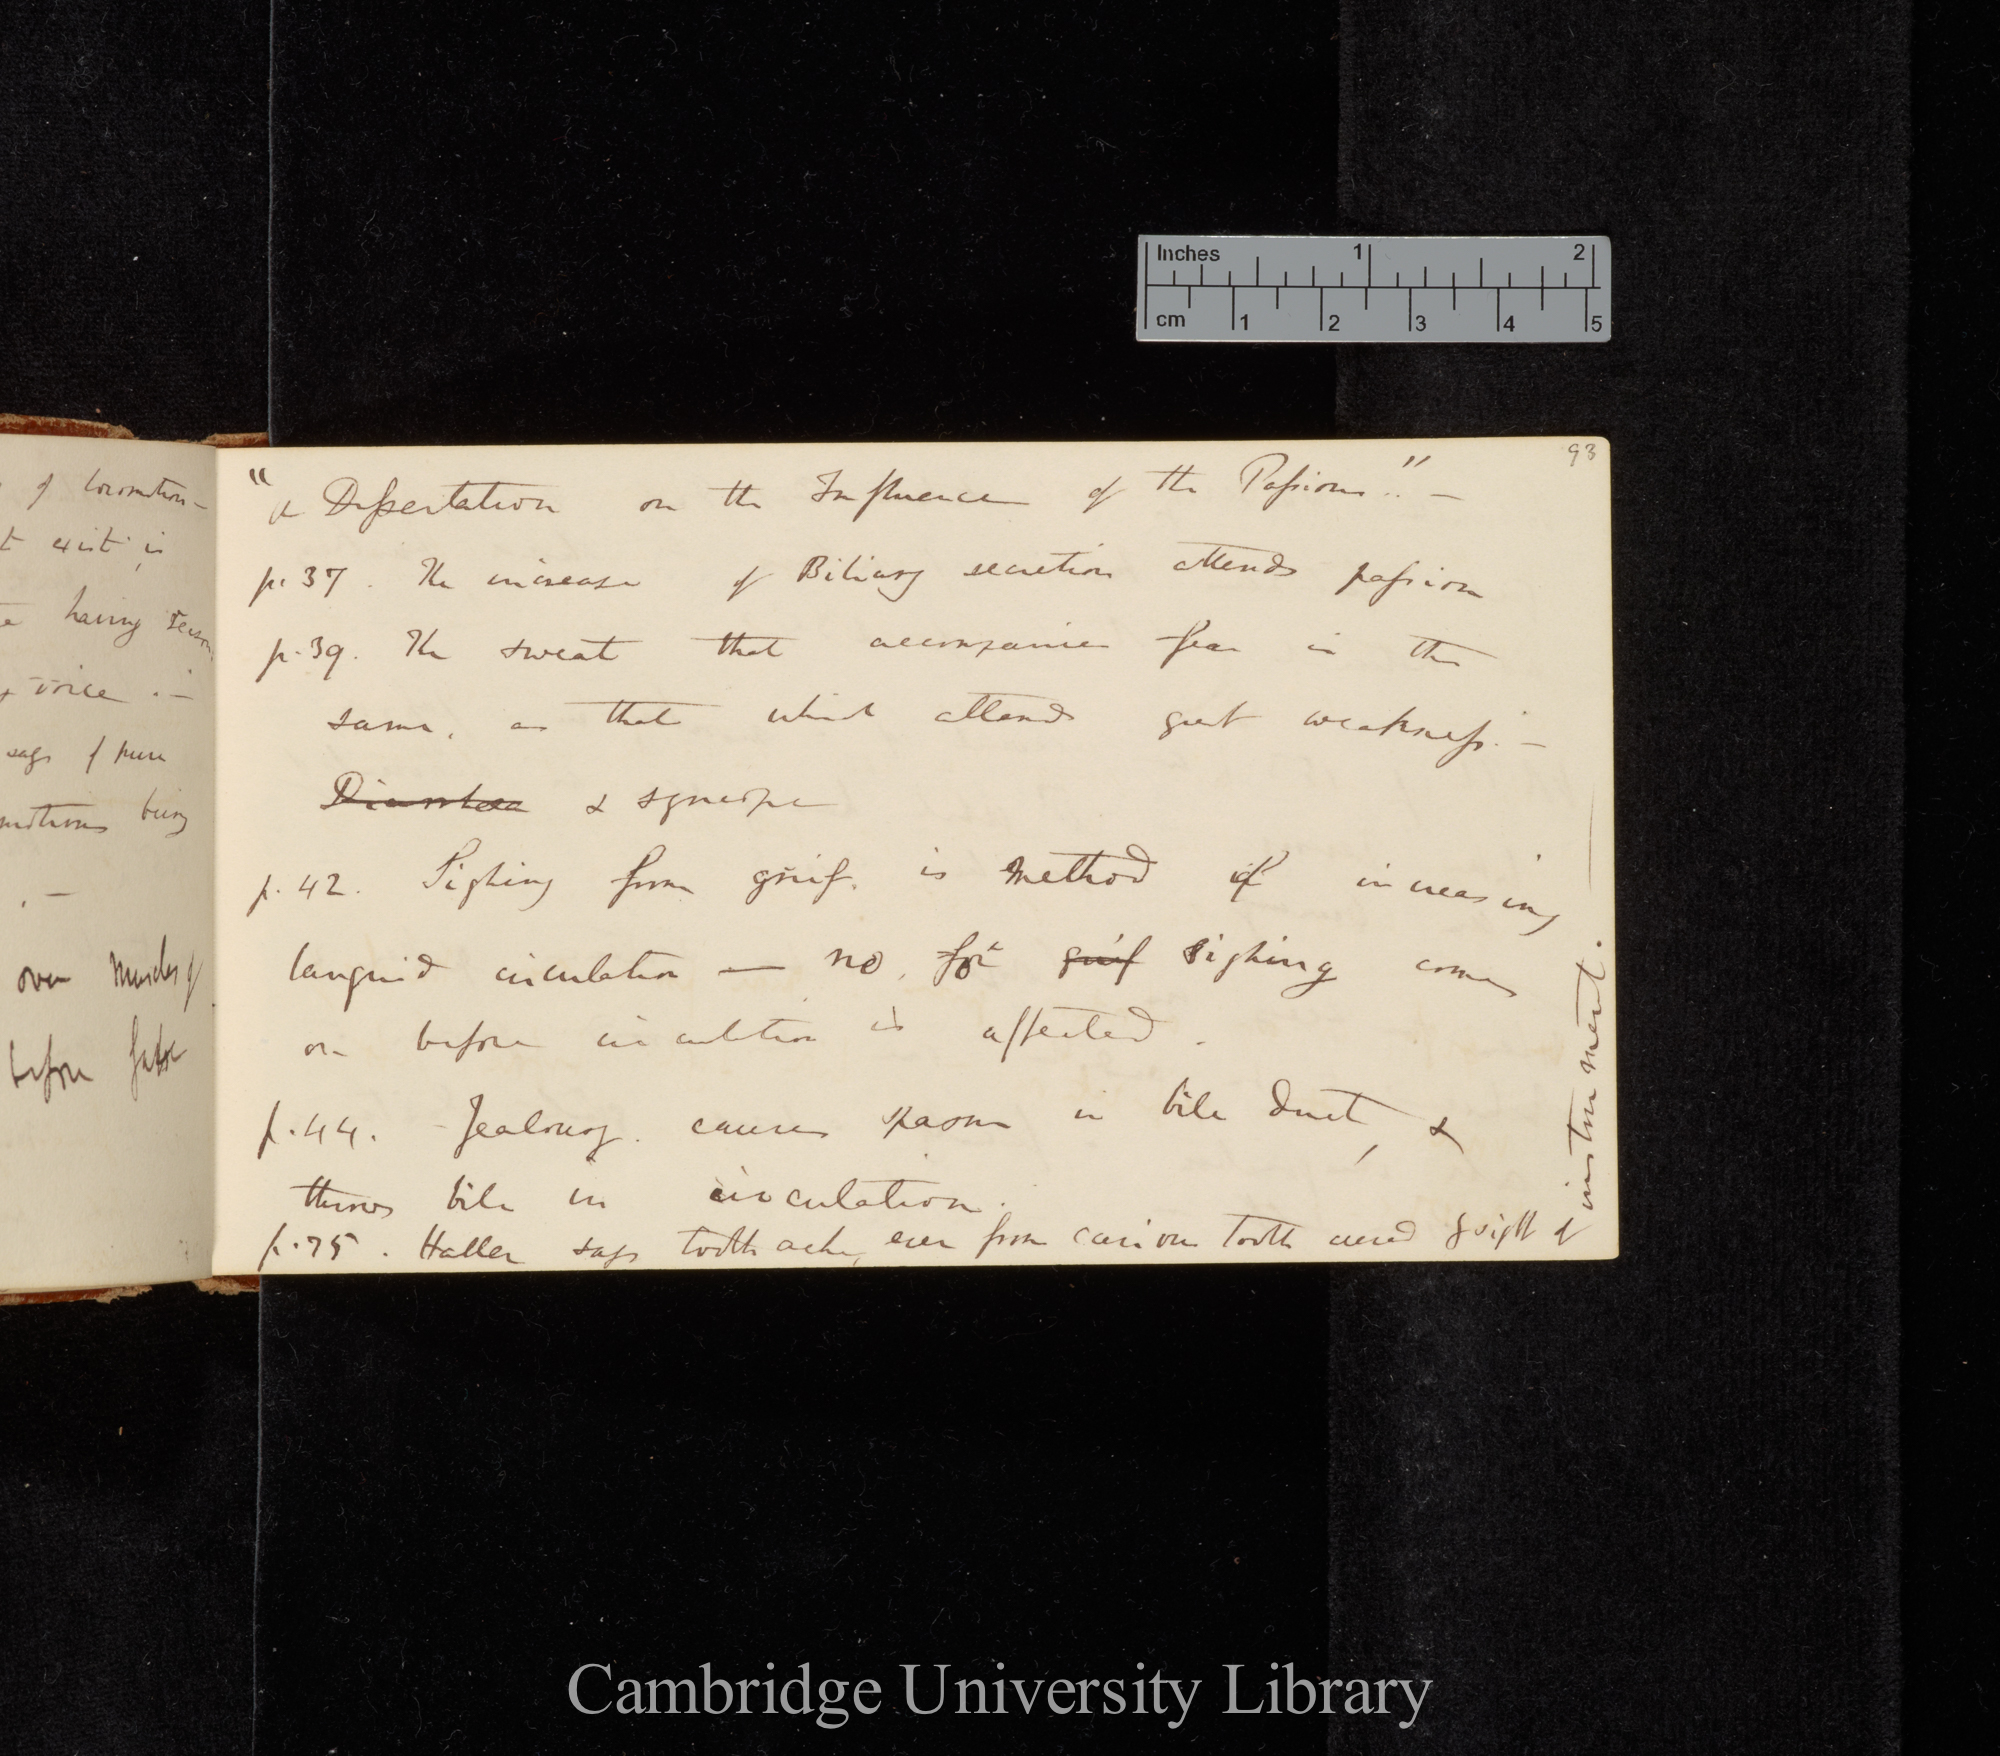 of locomotion —
t exist in
having reason
voice . —
says of pure
emotions being
. —
over muscles of
before
93
"A Dissertation on the Influence of the Passions". —
p. 37. The increase of Biliary secretion attends passion
p. 39. The sweat that accompanies fear is the
same, as that which attends great weakness. —
Diarrhœa & syncope
p. 42. Sighing from grief. is method of increasing
languid circulation — no, for grief sighing comes
on before circulation is affected.
p. 44. Jealousy. causes spasm in bile duct, &
throws bile in circulation.
p. 75. Haller says tooth ache, even from carious tooth cured by sight of
instrument.
Inches 1 2
cm 1 2 3 4 5
Cambridge University Library